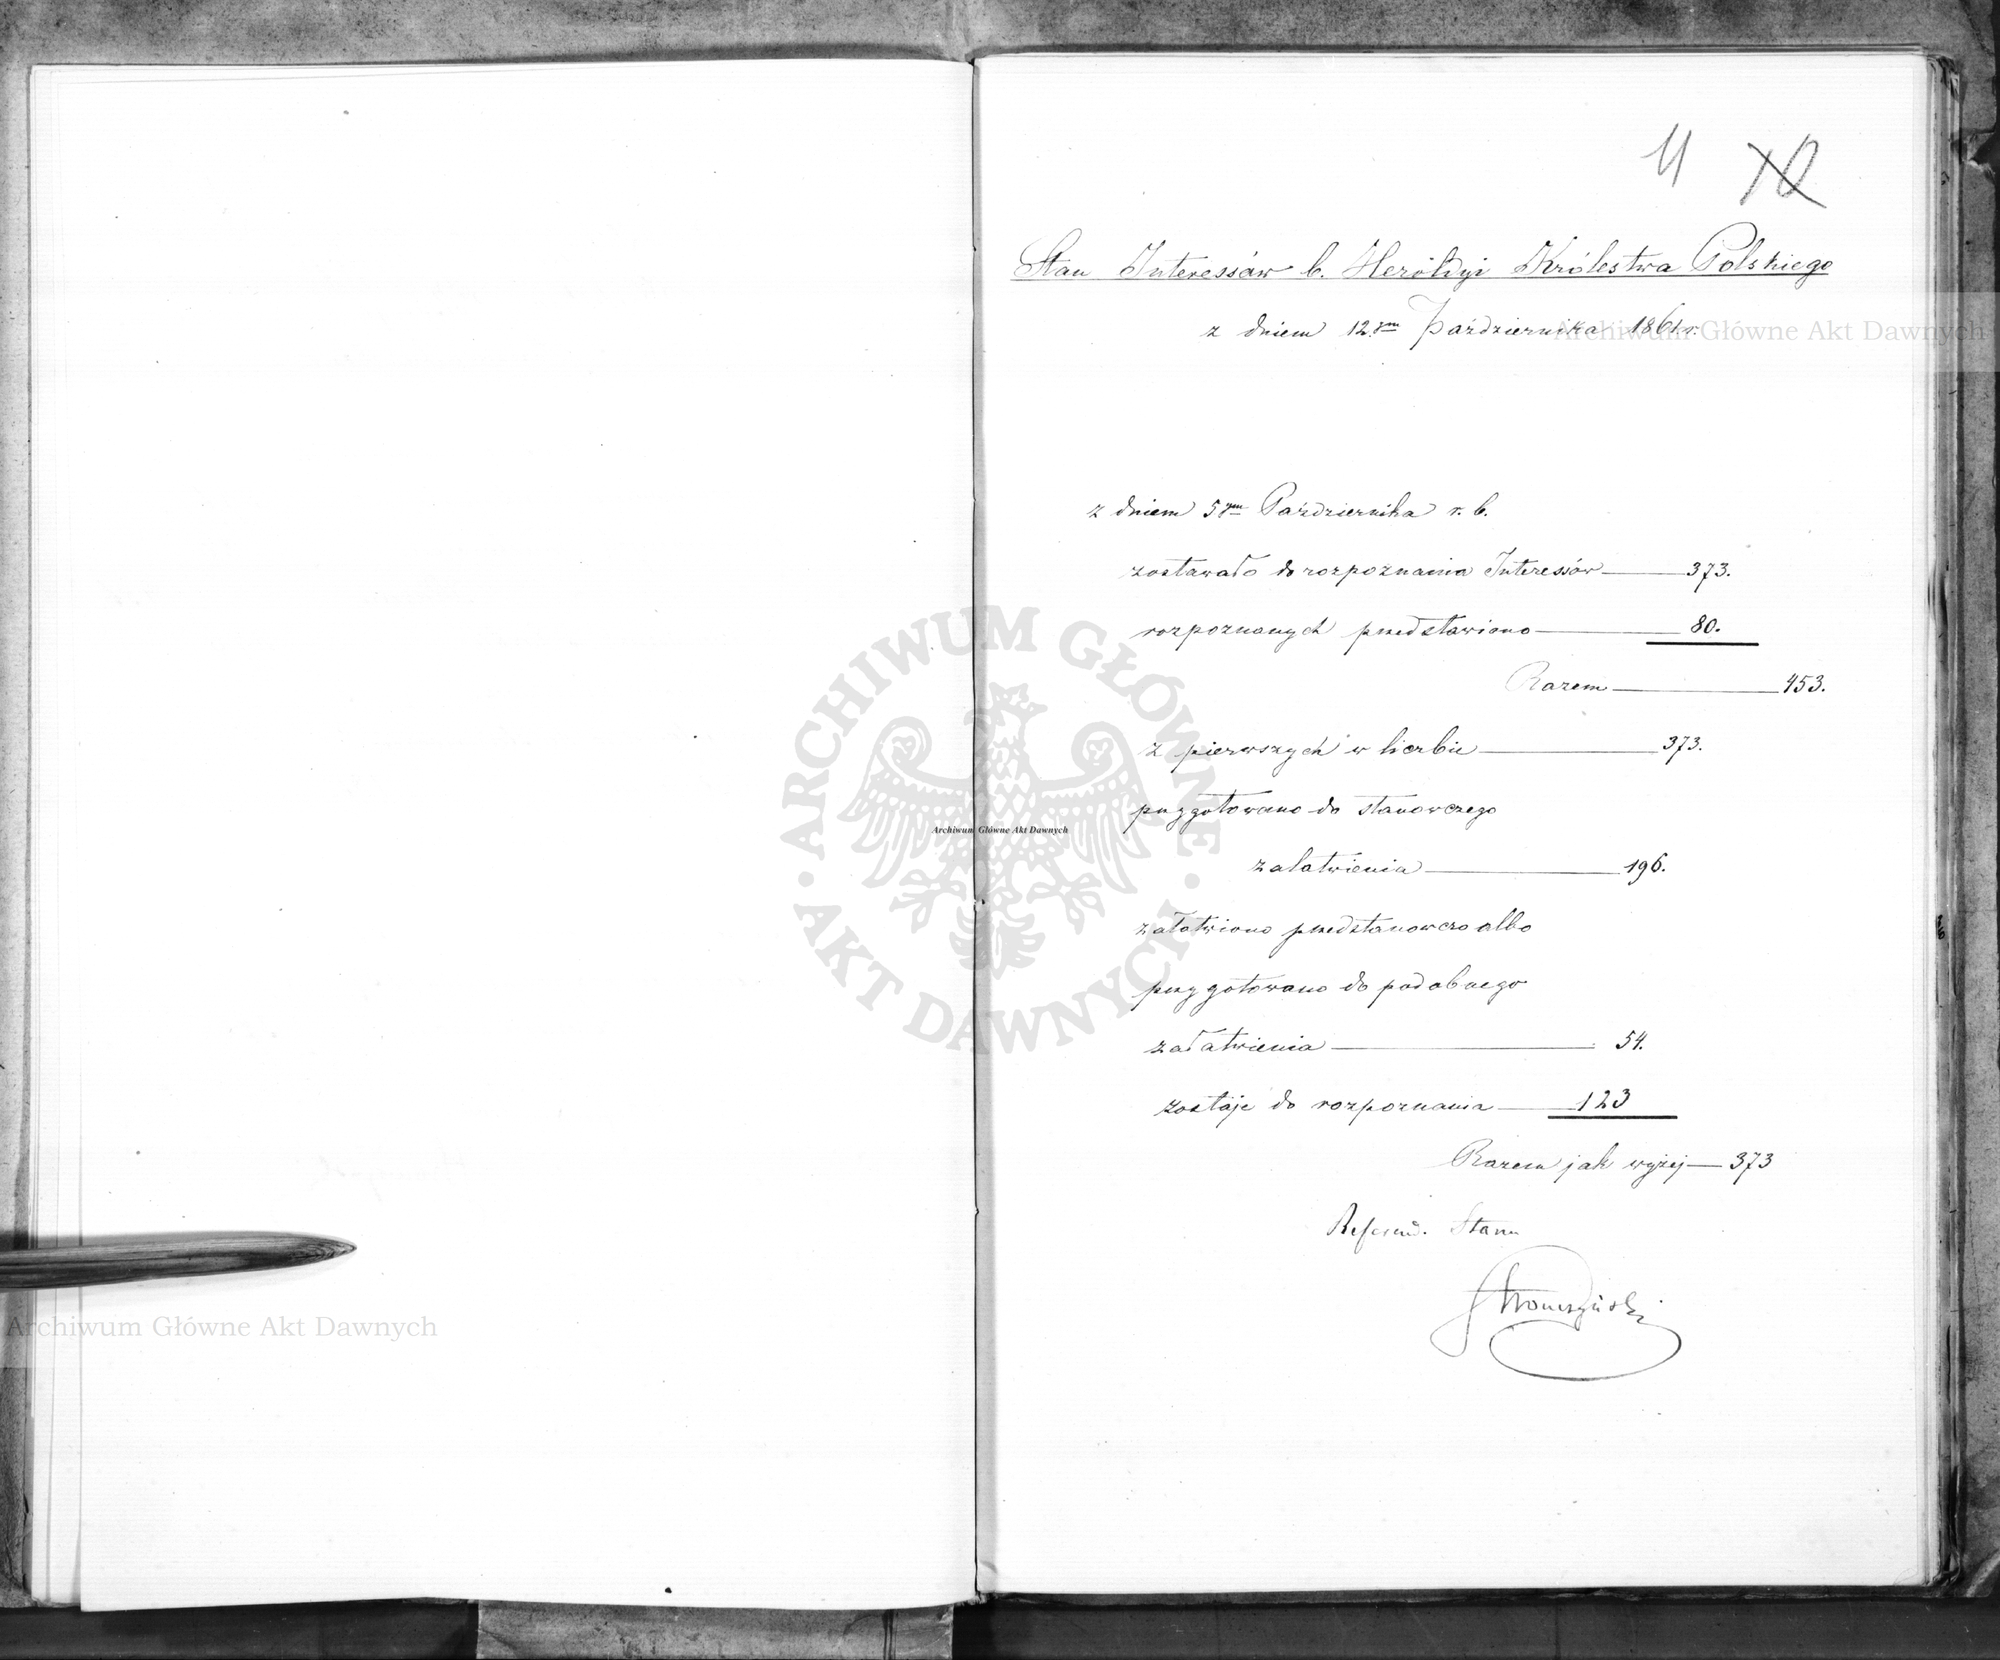 11 10
Stan Interessów b. Heroldyi Królestwa Polskiego
z dniem 12ym Października 1861 r.
z dniem 5ym Października r. b.
zostawało do rozpoznania Interessów 373.
rozpoznanych przedstawiono 80.
Razem 453.
z pierwszych w liczbie 373.
przygotowano do stanowczego
załatwienia 196.
załatwiono przedstanowczo albo
przygotowano do podobnego
załatwienia 54.
zostaje do rozpoznania 123
Razem jak wyżej 373
Referend. Stanu
Stronczyński
Archiwum Główne Akt Dawnych
ARCHIWUM GŁÓWNE · AKT DAWNYCH ·
Archiwum Główne Akt Dawnych
Archiwum Główne Akt Dawnych